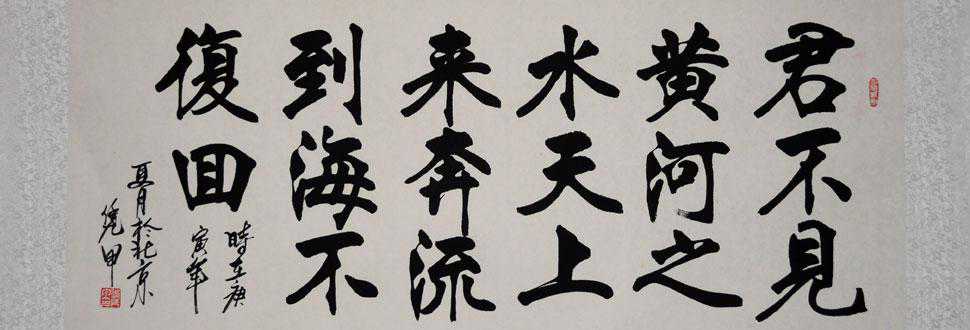 君不見
黄河之
水天上
来奔流
到海不
復回
時在庚
寅年
夏月於北京
甲